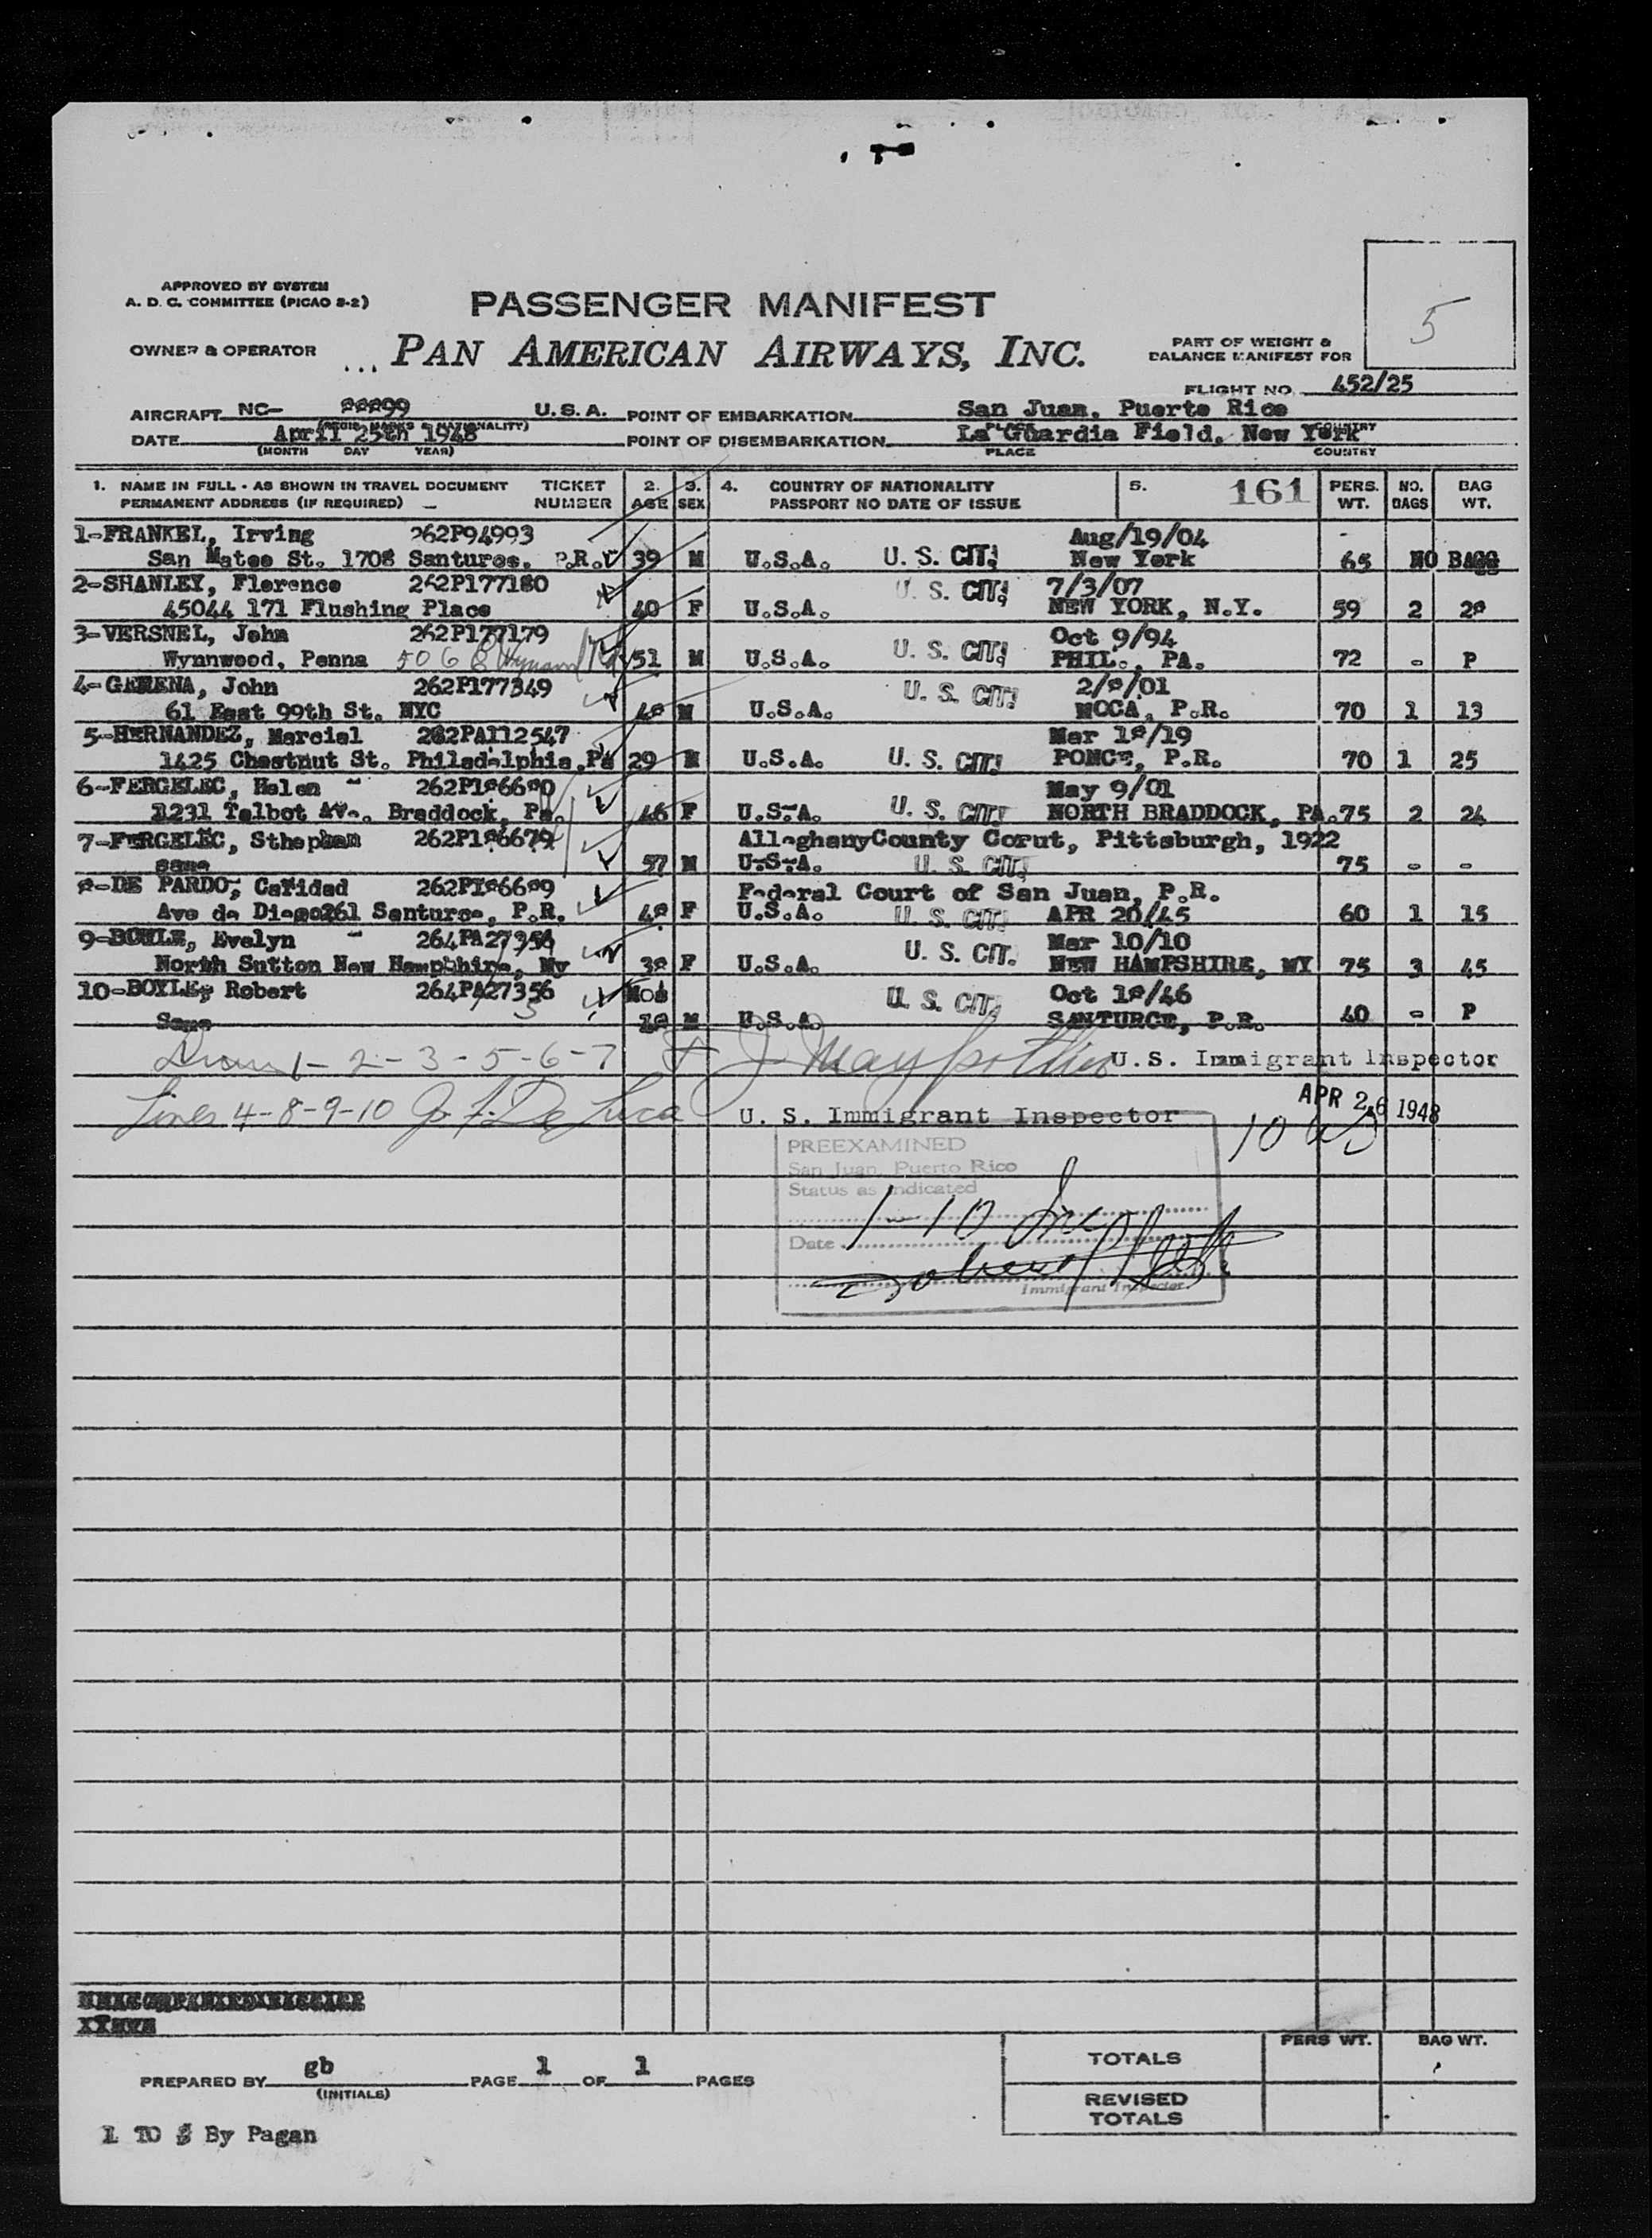 5
APPROVED BY SYSTEM
A. D. C. COMMITTEE (PICAO 8-2)
PASSENGER MANIFEST
OWNER & OPERATOR ... PAN AMERICAN AIRWAYS, INC.
PART OF WEIGHT &
BALANCE MANIFEST FOR
FLIGHT NO. 452/25
AIRCRAFT NC- 88899 U.S.A. POINT OF EMBARKATION San Juan, Puerto Rico
DATE April 25th 1948 POINT OF DISEMBARKATION La Guardia Field, New York
(MONTH DAY YEAR) PLACE COUNTRY
1. NAME IN FULL - AS SHOWN IN TRAVEL DOCUMENT TICKET 2. 3. 4. COUNTRY OF NATIONALITY 5. 161 PERS. NO. BAG
PERMANENT ADDRESS (IF REQUIRED) NUMBER AGE SEX PASSPORT NO DATE OF ISSUE WT. BAGS WT.
1-FRANKEL, Irving 262P94993 Aug/19/04
San Mateo St. 1708 Santurce. P.R. 39 M U.S.A. U. S. CIT. New York 65 NO BAGG
2-SHANLEY, Florence 262P177180 U. S. CIT. 7/3/07
45044 171 Flushing Place 40 F U.S.A. NEW YORK, N.Y. 59 2 28
3-VERSNEL, John 262P177179 Oct 9/94
Wynnwood, Penna 506 E 51 M U.S.A. U. S. CIT. PHIL., PA. 72 - P
4-GERENA, John 262P177349 U. S. CIT. 2/8/01
61 East 99th St. NYC 48 M U.S.A. MOCA, P.R. 70 1 13
5-HERNANDEZ, Marcial 282PA112547 Mar 18/19
1425 Chestnut St. Philadelphia.Pa 29 M U.S.A. U. S. CIT. PONCE, P.R. 70 1 25
6-FERGELEC, Helen 262P186680 May 9/01
1231 Talbot Av.. Braddock, Pa. 46 F U.S.A. U. S. CIT. NORTH BRADDOCK, PA. 75 2 24
7-FERGELEC, Sthephem 262P186679 AlleghanyCounty Corut, Pittsburgh, 1922
same 57 M U.S.A. U. S. CIT. 75 - -
8-DE PARDO, Caridad 262P186689 Federal Court of San Juan, P.R.
Ave de Diego261 Santurce, P.R. 48 F U.S.A. U. S. CIT. APR 20/45 60 1 15
9-BOYLE, Evelyn 264PA27356 U. S. CIT. Mar 10/10
North Sutton New Hampshire, Ny 38 F U.S.A. NEW HAMPSHIRE, NY 75 3 45
10-BOYLE, Robert 264PA27356 5 Mos U. S. CIT. Oct 18/46
Same 18 M U.S.A. SANTURCE, P.R. 40 - P
1-2-3-5-6-7 U.S. Immigrant Inspector
Lines 4-8-9-10 J. F. De Luca U. S. Immigrant Inspector APR 26 1948
10
PREEXAMINED
San Juan, Puerto Rico
Status as indicated
1-10 Inc
Date
Immigrant Inspector
PREPARED BY gb PAGE 1 OF 1 PAGES
(INITIALS)
PERS WT. BAG WT.
TOTALS
REVISED
TOTALS
1 TO 5 By Pagan